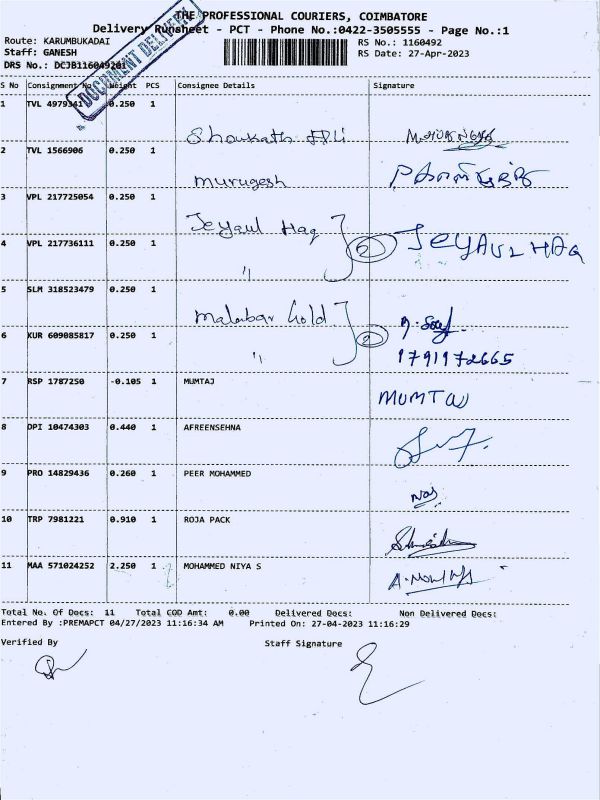 THE PROFESSIONAL COURIERS, COIMBATORE
Delivery Runsheet - PCT - Phone No.:0422-3505555 - Page No.:1
Route: KARUMBUKADAI
RS No.: 1160492
Staff: GANESH
RS Date: 27-Apr-2023
DRS No.: DCJB1160492
DOCUMENT DELIVERY
S No Consignment No Weight PCS Consignee Details Signature
1 TVL 4979341 0.250 1 Shoukath Ali
2 TVL 1566906 0.250 1 Murugesh
3 VPL 217725054 0.250 1 Jeyaul Haq
4 VPL 217736111 0.250 1 " 2 JEYAUL HAQ
5 SLM 318523479 0.250 1 Malabar Gold
6 KUR 609085817 0.250 1 " 2 1791972665
7 RSP 1787250 -0.105 1 MUMTAJ MUMTAJ
8 DPI 10474303 0.440 1 AFREENSEHNA
9 PRO 14829436 0.260 1 PEER MOHAMMED
10 TRP 7981221 0.910 1 ROJA PACK
11 MAA 571024252 2.250 1 MOHAMMED NIYA S
Total No. Of Docs: 11 Total COD Amt: 0.00 Delivered Docs: Non Delivered Docs:
Entered By :PREMAPCT 04/27/2023 11:16:34 AM Printed On: 27-04-2023 11:16:29
Verified By Staff Signature